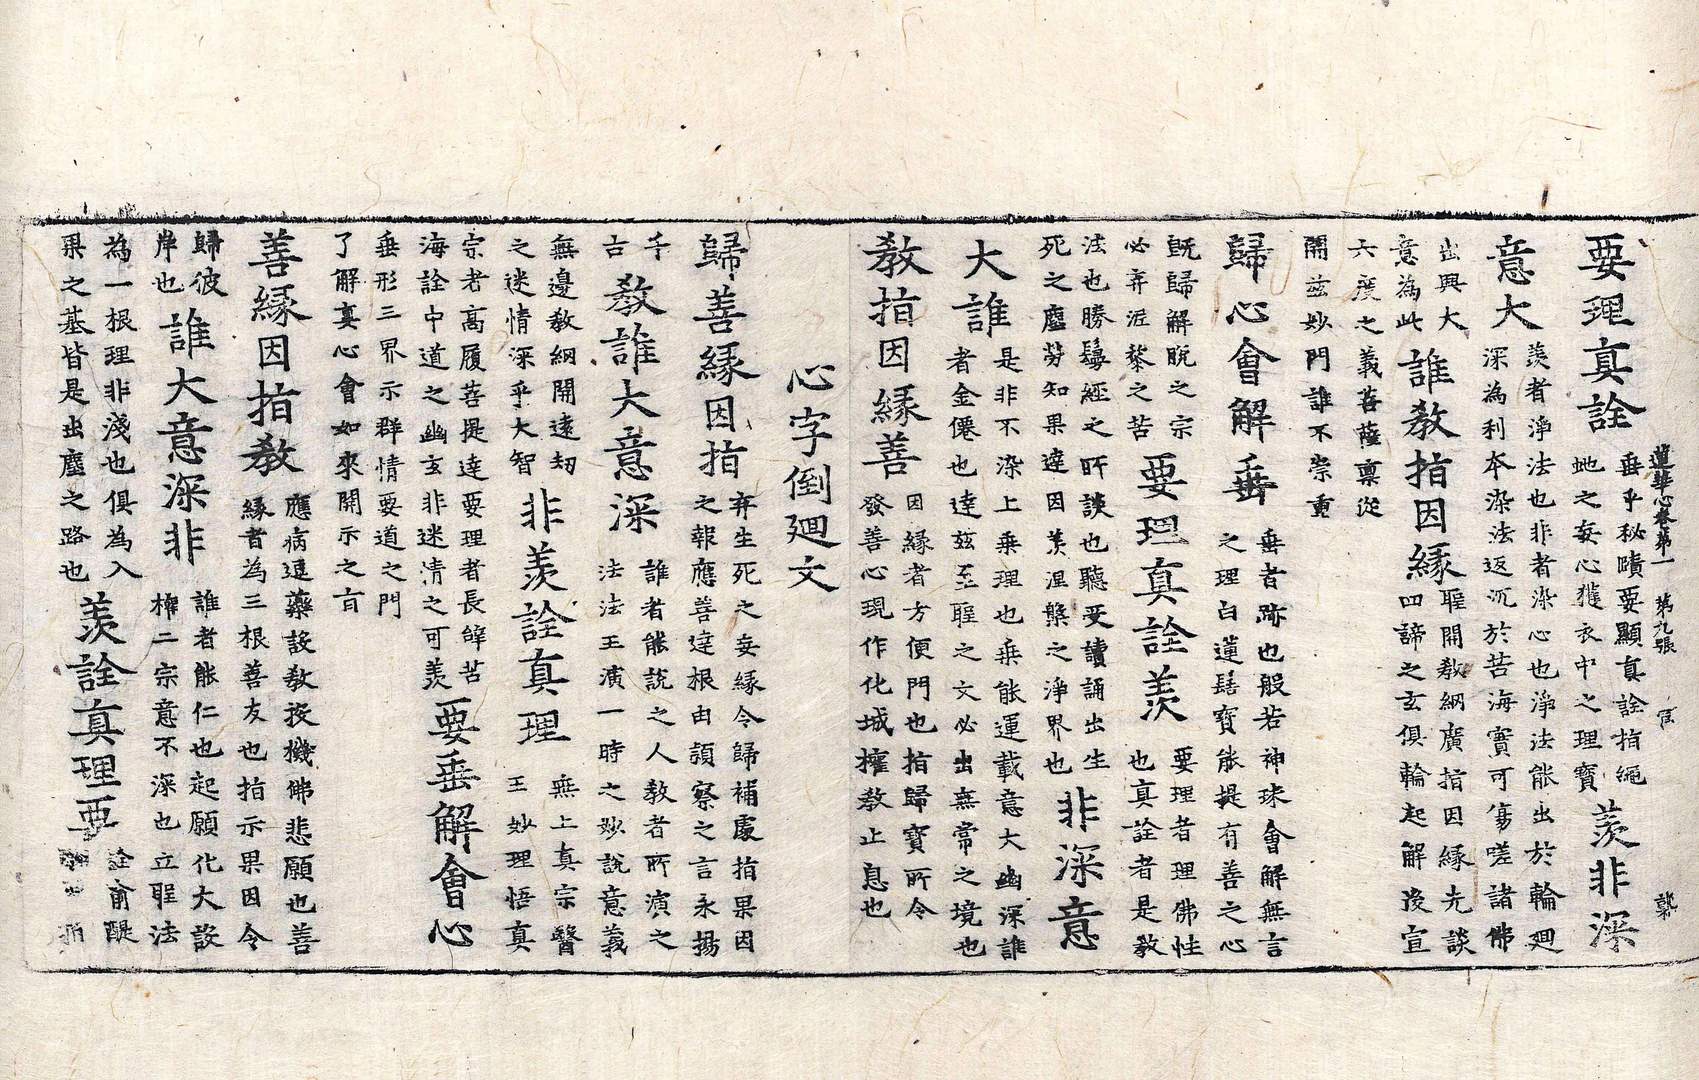 要理真詮
垂乎秘賾要顯真詮指繩
地之妄心獲衣中之理寶
羡非深
蓮華心卷第一　第九張
意大
羡者淨法也非者染心也淨法能出於輪廻
深為利本染法返沉於苦海實可傷嗟諸佛
出興大
意為此
誰教指因緣
聖開教網廣指因緣先談
四諦之玄俱輪起解後宣
六度之義菩薩稟從
開茲妙門誰不崇重
歸心會解垂
垂者跡也般若神珠會解無言
之理白蓮髻寶能提有善之心
既歸解脫之宗
必弃泥黎之苦
要理真詮羡
要理者理佛性
也真詮者是教
法也勝鬘經之所談也聽受讀誦出生
死之塵勞知果達因羡涅槃之淨界也
非深意
大誰
是非不染上乗理也乗能運載意大幽深誰
者金僊也達茲至聖之文必出無常之境也
教指因緣善
因緣者方便門也指歸寶所令
發善心現作化城攉教止息也
心字倒廻文
歸善緣因指
弃生死之妄緣令歸補處指果因
之報應善達根由頴察之言永揚
千
古
教誰大意深
誰者能說之人教者所演之
法法王演一時之妙說意義
無邊教網開遠刼
之迷情深乎大智
非羡詮真理
無上真宗醫
王妙理悟真
宗者高履菩提達要理者長辭苦
海詮中道之幽玄非迷情之可羡
要垂解會心
垂形三界示群情要道之門
了解真心會如來開示之旨
善緣因指教
應病逗藥設教投機佛悲願也善
緣者為三根善友也指示果因令
歸彼
岸也
誰大意深非
誰者能仁也起願化大設
權二宗意不深也立聖法
為一根理非淺也俱為入
果之基皆是出塵之路也
羡詮真理要
詮俞醍